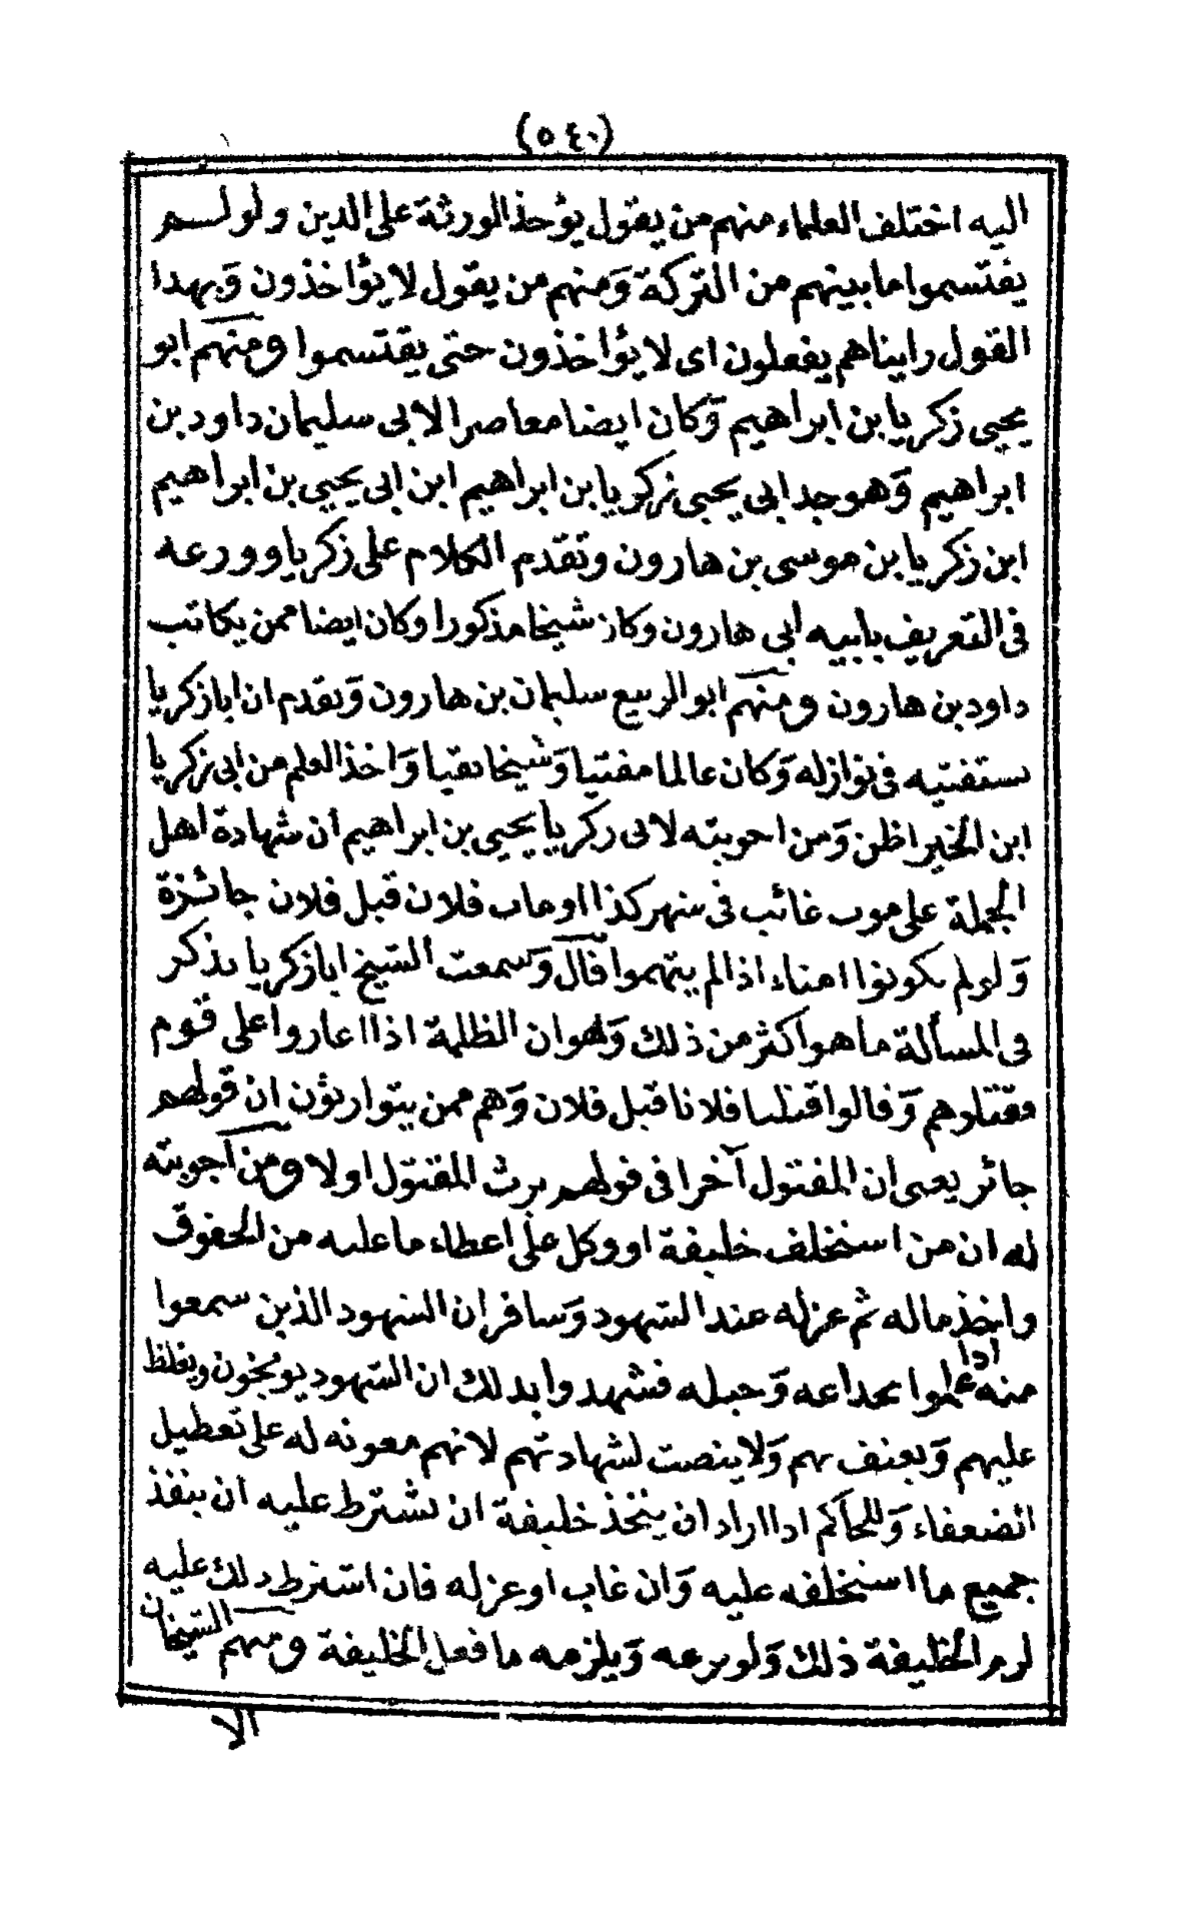 (٥٤٠)
اليه اختلف العلماء منهم من يقول يؤخذ الورثة على الدين ولو لم
يقتسموا ما بينهم من التركة ومنهم من يقول لا يؤاخذون وبهذا
القول راينا هم يفعلون اى لا يؤاخذون حتى يقتسموا ومنهم ابو
يحيى زكريا بن ابراهيم وكان ايضا معاصرا لأبى سليمان داود بن
ابراهيم وهو جد ابى يحيى زكريا بن ابراهيم ابن ابى يحيى بن ابراهيم
ابن زكريا بن موسى بن هارون وتقدم الكلام على زكريا وورعه
فى التعريف بابيه ابى هارون وكان شيخا مذكورا وكان ايضا ممن يكاتب
داود بن هارون ومنهم ابو الربيع سليمان بن هارون وتقدم ان ابا زكريا
يستفتيه فى نوازله وكان عالما مفتيا وشيخا تقيا واخذ العلم من ابى زكريا
ابن الخير اظن ومن اجوبته لابى زكريا يحيى بن ابراهيم ان شهادة اهل
الجملة على موت غائب فى شهر كذا او مات فلان قبل فلان جائزة
ولو لم يكونوا امناء اذا لم يتهموا قال وسمعت الشيخ ابا زكريا يذكر
فى المسألة ما هو أكثر من ذلك وهو ان الظلمة اذا اغاروا على قوم
فقتلوهم وقالوا قتلنا فلانا قبل فلان وهم ممن يتوارثون ان قولهم
جائز يعنى ان المقتول آخرا فى قولهم يرث المقتول اولا ومن أجوبته
له ان من استخلف خليفة او وكل على اعطاء ما عليه من الحقوق
واخذ ماله ثم عزله عند الشهود وسافر ان الشهود الذين سمعوا
منه اذا علموا بخداعه وحيله فشهدوا بذلك ان الشهود يوبخون ويغلظ
عليهم ويعنف بهم ولا ينصت لشهادتهم لانهم معونة له على تعطيل
الضعفاء وللحاكم اذا اراد ان يتخذ خليفة ان يشترط عليه ان ينفذ
جميع ما استخلفه عليه وان غاب او عزله فان اشترط ذلك عليه
لزم الخليفة ذلك ولو نزعه ويلزمه ما فعل الخليفة ومنهم الشيخان
الا